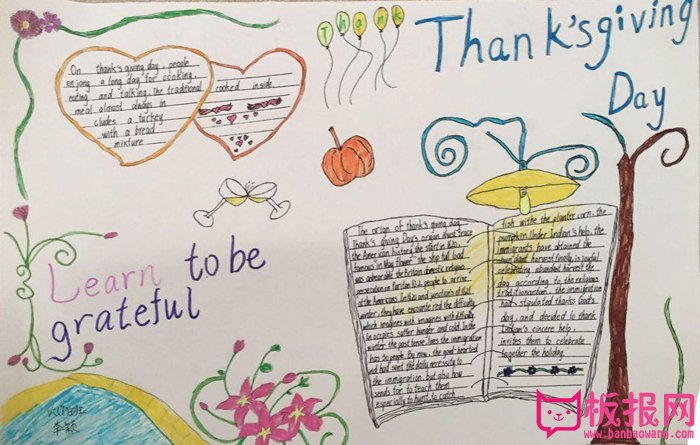 Thank
Thank'sgiving
Day
On thank's giving day, people
enjong a long day for cooking,
eating and talking, the traditional
cooked inside.
meal almost always in
cludes a turkey
with a bread
mixture
Learn to be
grateful
The origin of thank's giving day
Thank's giving Day's origin must trace
the American history the start in 1620,
famous "May flower" the ship full load
was unbearable the Britain domestic religious
persecution on Puritan 102 people to arrive
the Americas. In 1620 and junctions of 1621
winter, they have encounte red the difficulty
which imagines with difficulty,
occupies suffer hunger and cold. In the
winter the past tense, lives the immigration
has 50 people. By now, the good-hearted
had sent the daily necessity to
the immigration, but also how
sends for to teach them
especially to hunt, to catch
fish withe the planter corn, the
pumpkin. Under Indian's help, the
immigrants have obtained the
harvest finally, in joyful
celebrating abundant harvest the
day according to the religious
tradition, the immigration
had stipulated thanks God's
day, and decided to thank
Indian's sincere help,
invites them to celebrate
together the holiday.
李颖
板报网
www.banbaowang.com